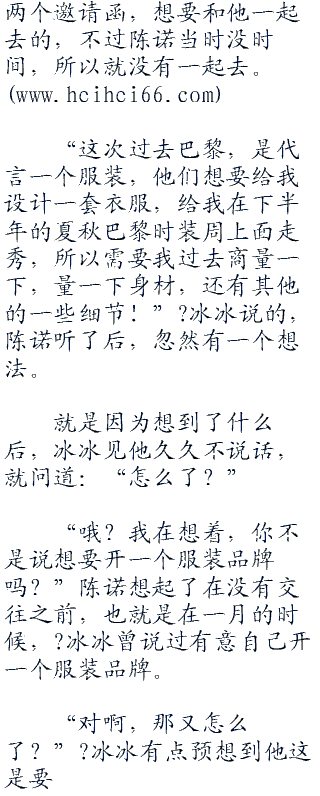 两个邀请函，想要和他一起
去的，不过陈诺当时没时
间，所以就没有一起去。
(www.hcihci66.com)
“这次过去巴黎，是代
言一个服装，他们想要给我
设计一套衣服，给我在下半
年的夏秋巴黎时装周上面走
秀，所以需要我过去商量一
下，量一下身材，还有其他
的一些细节！”?冰冰说的，
陈诺听了后，忽然有一个想
法。
就是因为想到了什么
后，冰冰见他久久不说话，
就问道：“怎么了？”
“哦？我在想着，你不
是说想要开一个服装品牌
吗？”陈诺想起了在没有交
往之前，也就是在一月的时
候，?冰冰曾说过有意自己开
一个服装品牌。
“对啊，那又怎么
了？”?冰冰有点预想到他这
是要